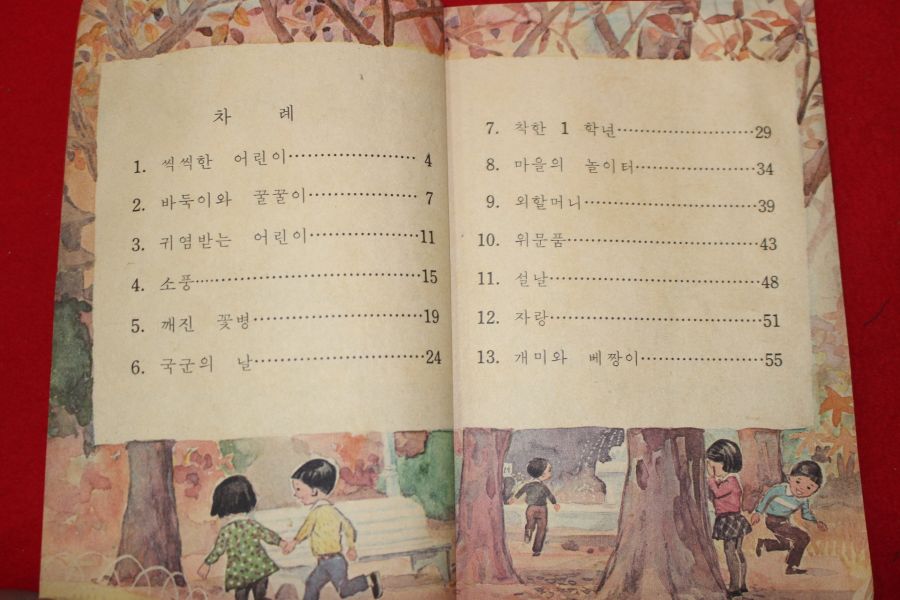 차 례
1. 씩씩한 어린이·················· 4
2. 바둑이와 꿀꿀이················ 7
3. 귀염받는 어린이················11
4. 소풍······························15
5. 깨진 꽃병························19
6. 국군의 날························24
7. 착한 1 학년····················29
8. 마을의 놀이터··················34
9. 외할머니························39
10. 위문품··························43
11. 설날······························48
12. 자랑······························51
13. 개미와 베짱이··················55